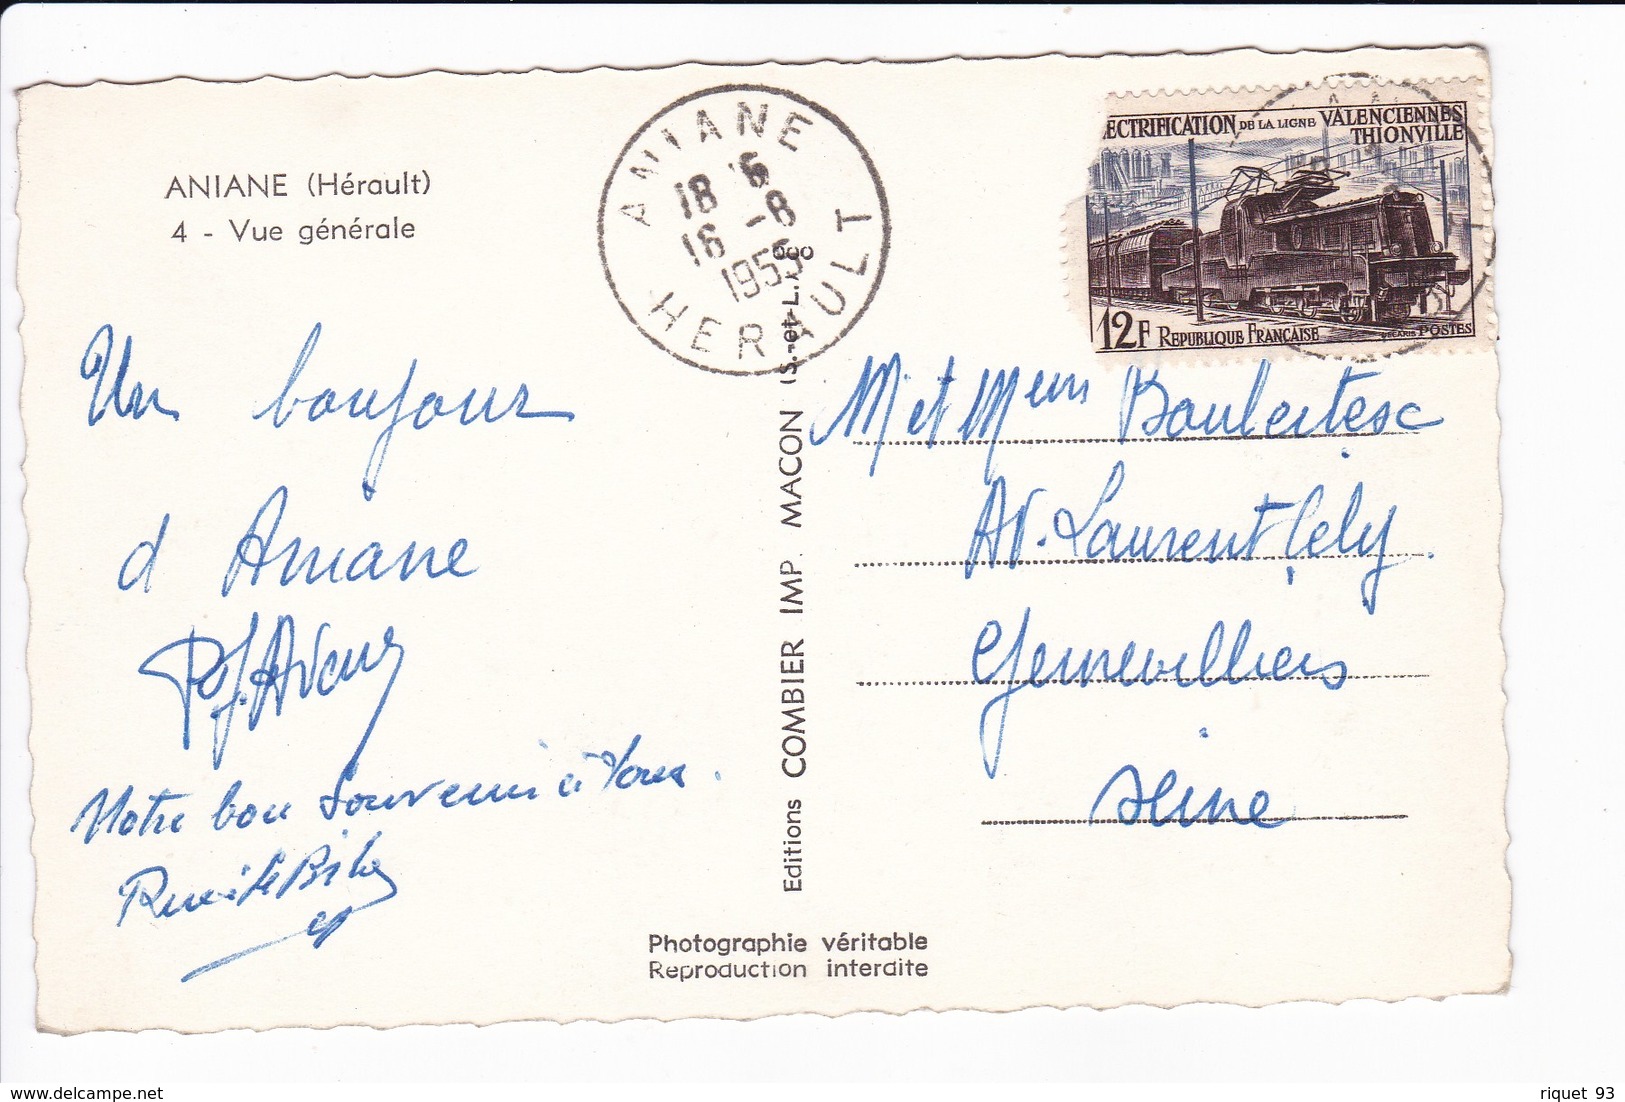 ANIANE (Hérault)
4 - Vue générale
ANIANE
18 6
16 -8
1955
HERAULT
ECTRIFICATION DE LA LIGNE VALENCIENNES
THIONVILLE
12F REPUBLIQUE FRANÇAISE POSTES
Un bonjour
d Aniane
Notre bon souvenir à tous.
Editions COMBIER IMP. MACON (S.-et-L.)
M et M
Av. Laurent Cely.
Gennevilliers
Seine
Photographie véritable
Reproduction interdite
riquet 93